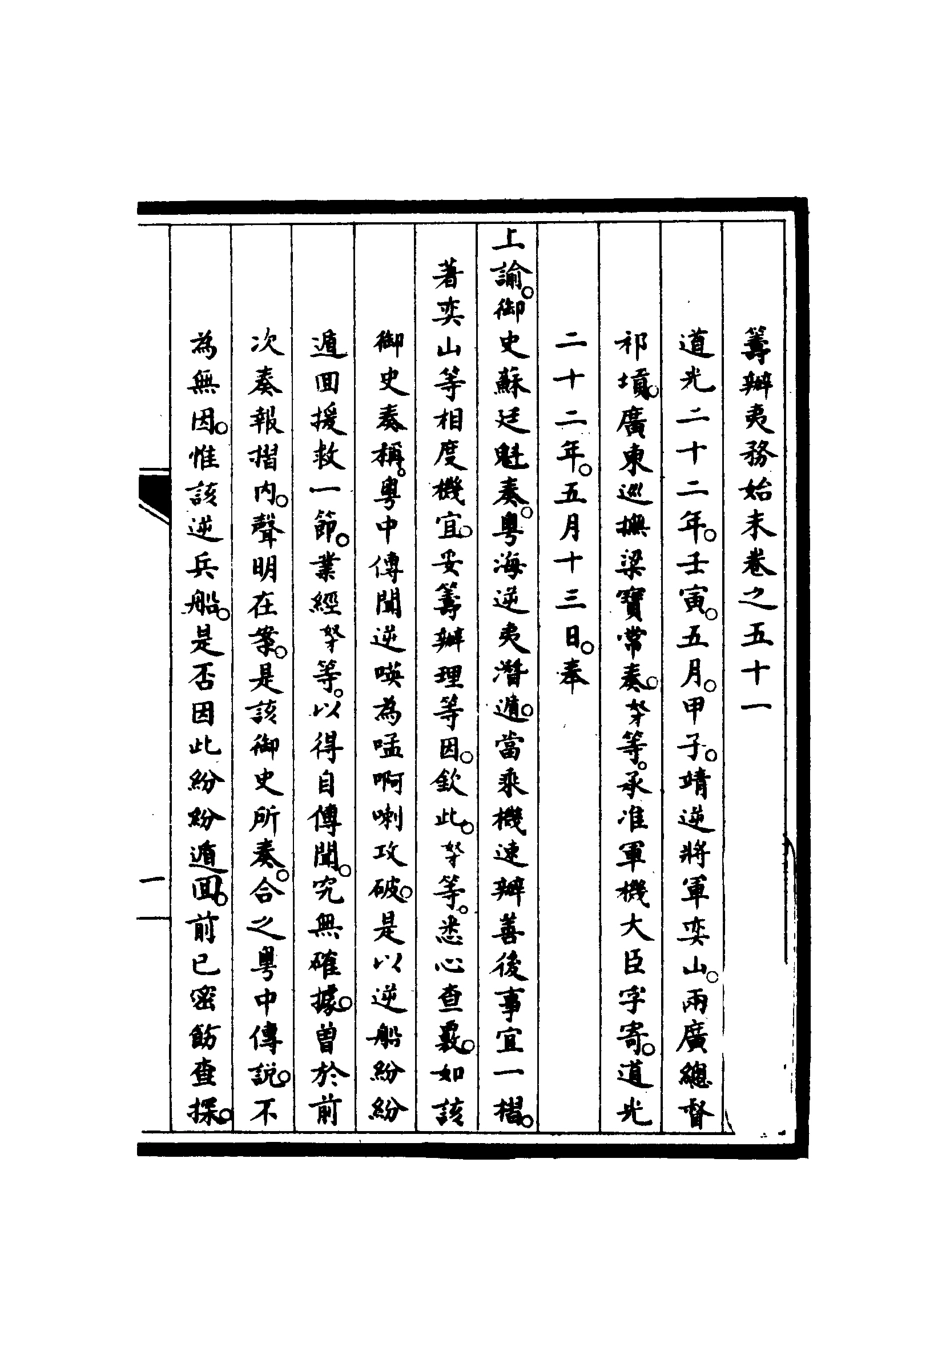 籌辦夷務始末卷之五十一
道光二十二年。壬寅。五月。甲子。靖逆將軍奕山。兩廣總督
祁𡎴。廣東巡撫梁寶常奏。奴才等。承准軍機大臣字寄。道光
二十二年。五月十三日。奉
上諭。御史蘇廷魁奏。粵海逆夷潛遁。當乘機速辦善後事宜一摺。
著奕山等相度機宜。妥籌辦理等因。欽此。奴才等。悉心查覈。如該
御史奏稱。粵中傳聞逆𠸄為㗁啊喇攻破。是以逆船紛紛
遁回援救一節。業經奴才等。以得自傳聞。究無確據。曾於前
次奏報摺內。聲明在案。是該御史所奏。合之粵中傳說。不
為無因。惟該逆兵船。是否因此紛紛遁回。前已密飭查探。
一